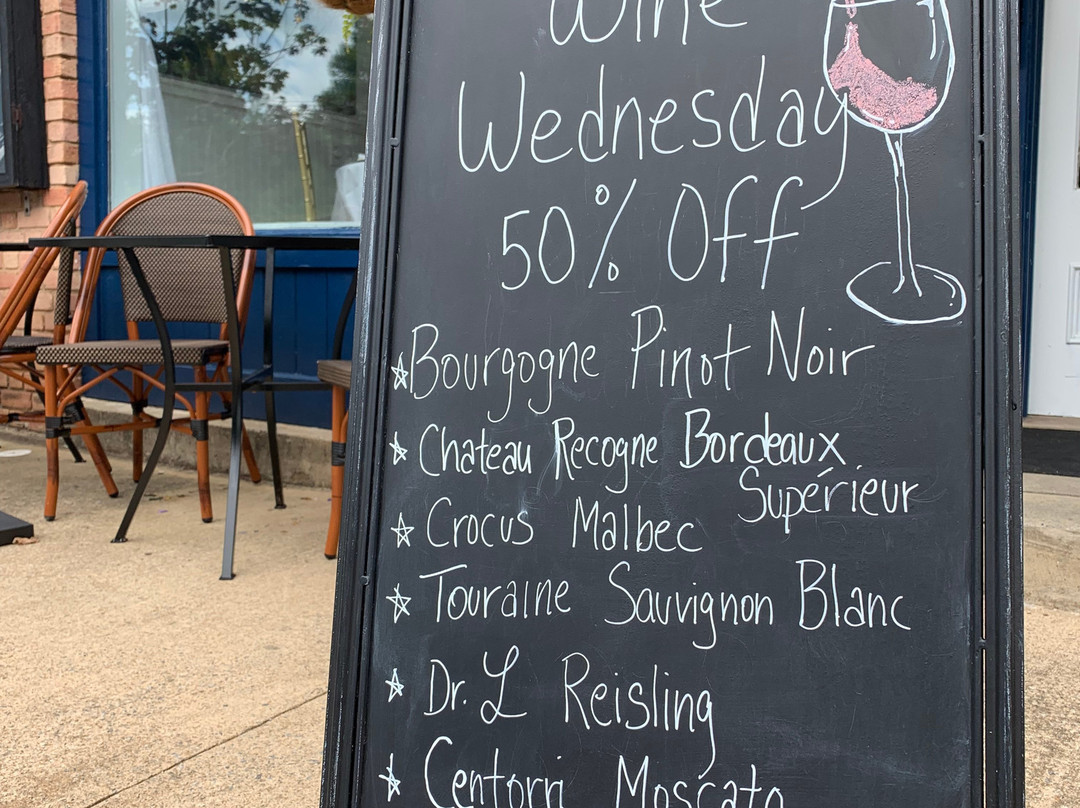 Wine
Wednesday
50% Off
☆ Bourgogne Pinot Noir
☆ Chateau Recogne Bordeaux
Supérieur
☆ Crocus Malbec
☆ Touraine Sauvignon Blanc
☆ Dr. L Reisling
☆ Centorri Moscato